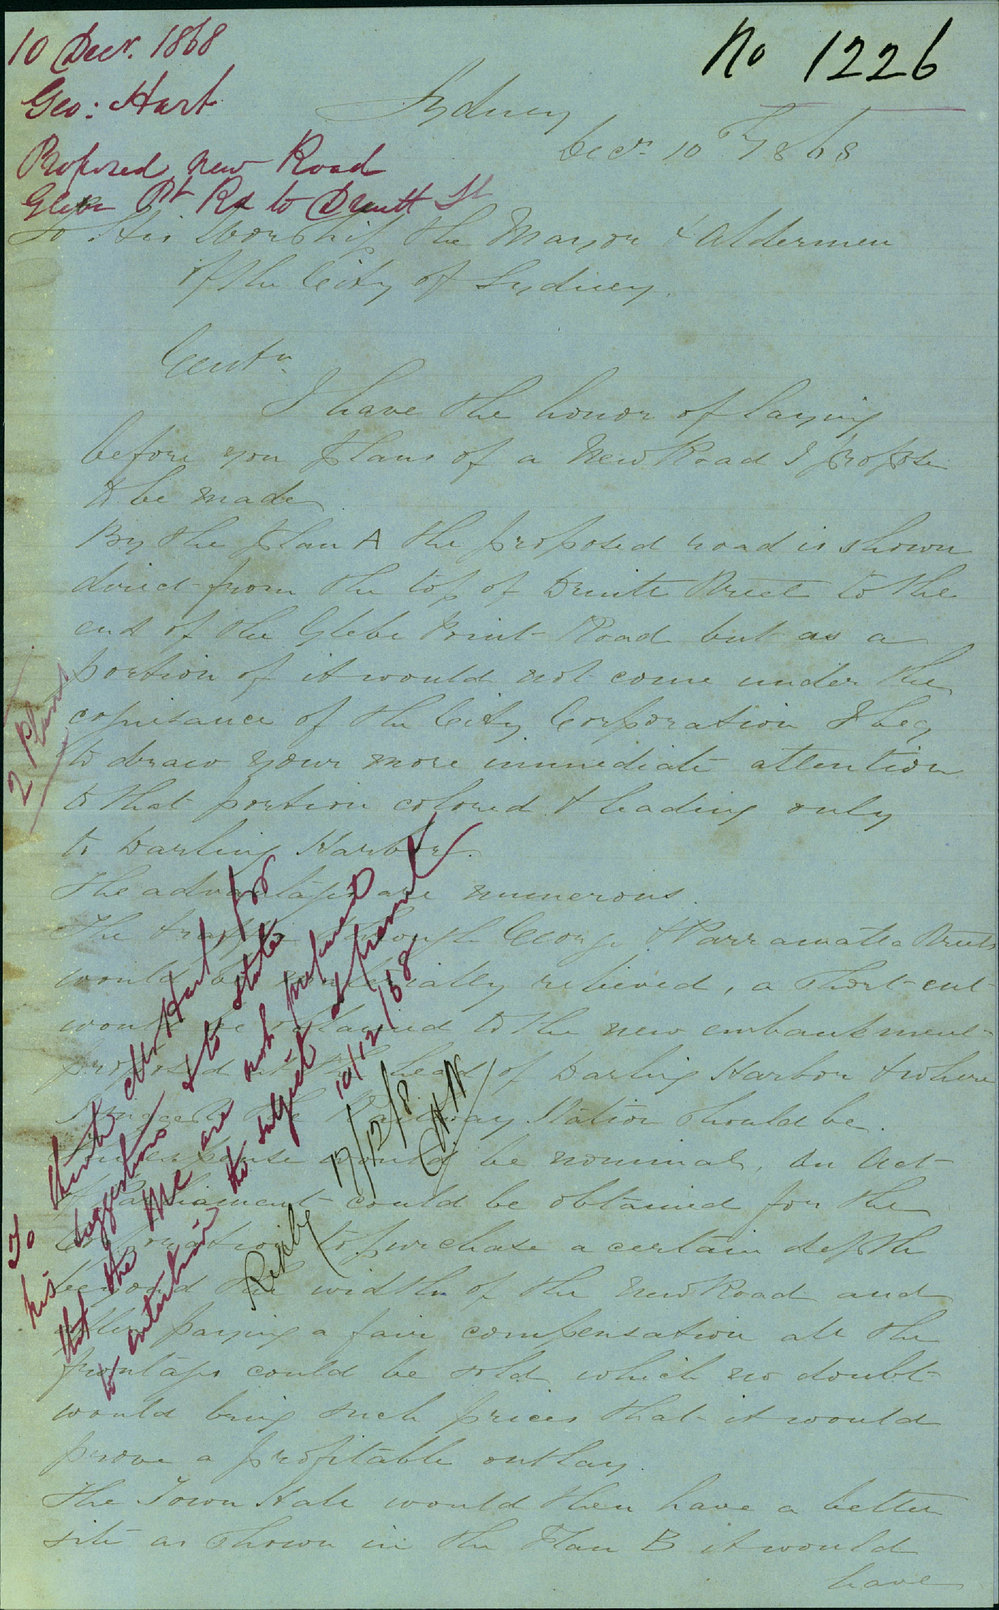 10 Decr. 1868
Geo: Hart
Proposed new Road
Glebe Pt Rd to Druitt St
No 1226
Sydney
Decr 10th 1868
To His Worship the Mayor & Aldermen
of the City of Sydney.
Gentn
I have the honor of laying
before you plans of a New Road I propose
to be made
By the plan A the proposed road is shown
direct from the top of Druitt Street to the
end of the Glebe Point Road but as a
portion of it would not come under the
cognisance of the City Corporation I beg
to draw your more immediate attention
to that portion colored & leading only
to Darling Harbor.
The advantages are numerous.
The traffic through George & Parramatta Streets
would be materially relieved, a short cut
would be obtained to the new embankment
proposed at the head of Darling Harbor & where
the Railway Station should be.
The expense would be nominal, an Act
of Parliament could be obtained for the
Corporation to purchase a certain depth
beyond the width of the New Road and
after paying a fair compensation all the
frontages could be sold which no doubt
would bring such prices that it would
prove a profitable outlay.
The Town Hall would then have a better
site as shown in the Plan B it would
have
2 Plans
To thank Mr Hart for
his suggestions & to state
that the MC are not prepared
to entertain the subject at present
10/12/68
17/12/8